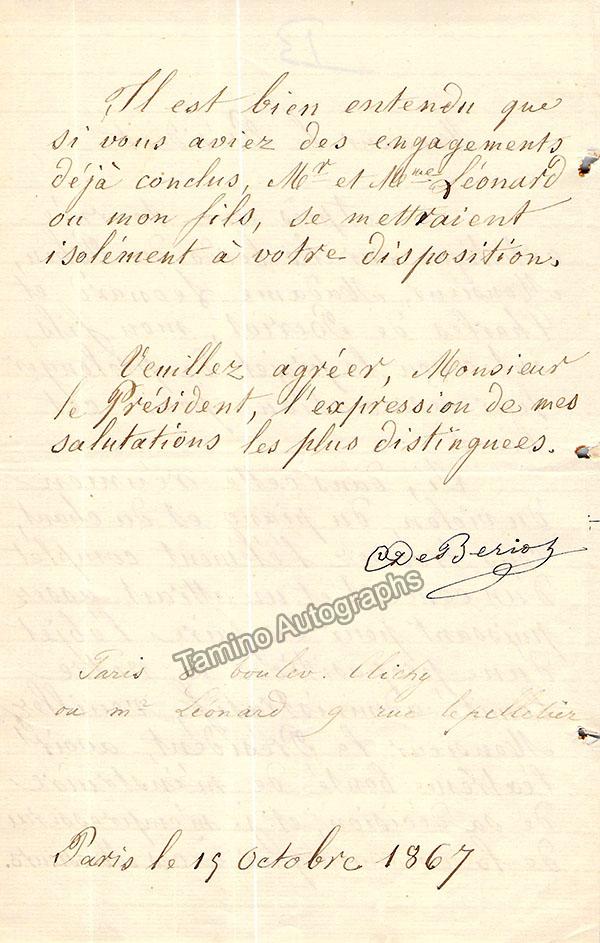 Il est bien entendu que
si vous aviez des engagements
déjà conclus, Mr et Mme Léonard
ou mon fils, se mettraient
isolément à votre disposition.
Veuillez agréer, Monsieur
le Président, l'expression de mes
salutations les plus distinguees.
CDeBeriot
Tamino Autographs
Paris boulev. Clichy
ou mr Léonard 9 rue lepelletier
Paris le 15 Octobre 1867